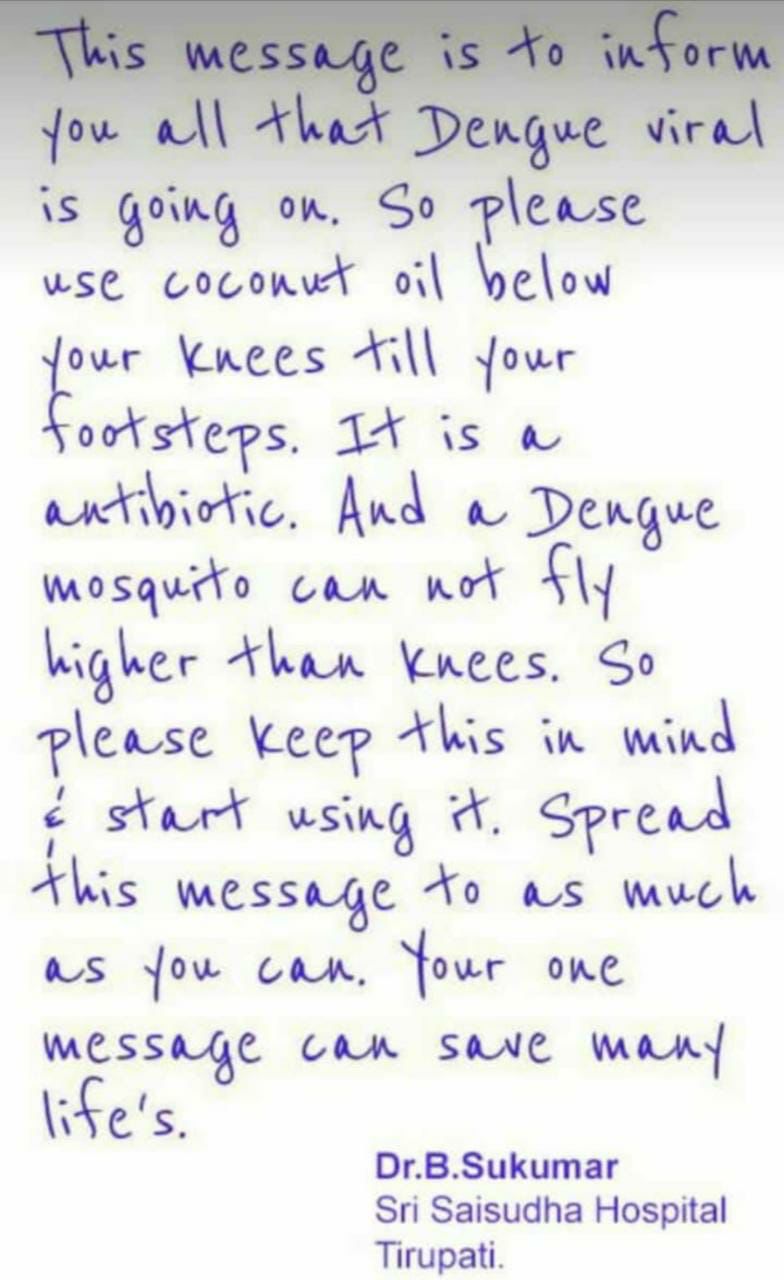 This message is to inform
you all that Dengue viral
is going on. So please
use coconut oil below
your knees till your
footsteps. It is a
antibiotic. And a Dengue
mosquito can not fly
higher than knees. So
please keep this in mind
& start using it. Spread
this message to as much
as you can. Your one
message can save many
life's.
Dr.B.Sukumar
Sri Saisudha Hospital
Tirupati.